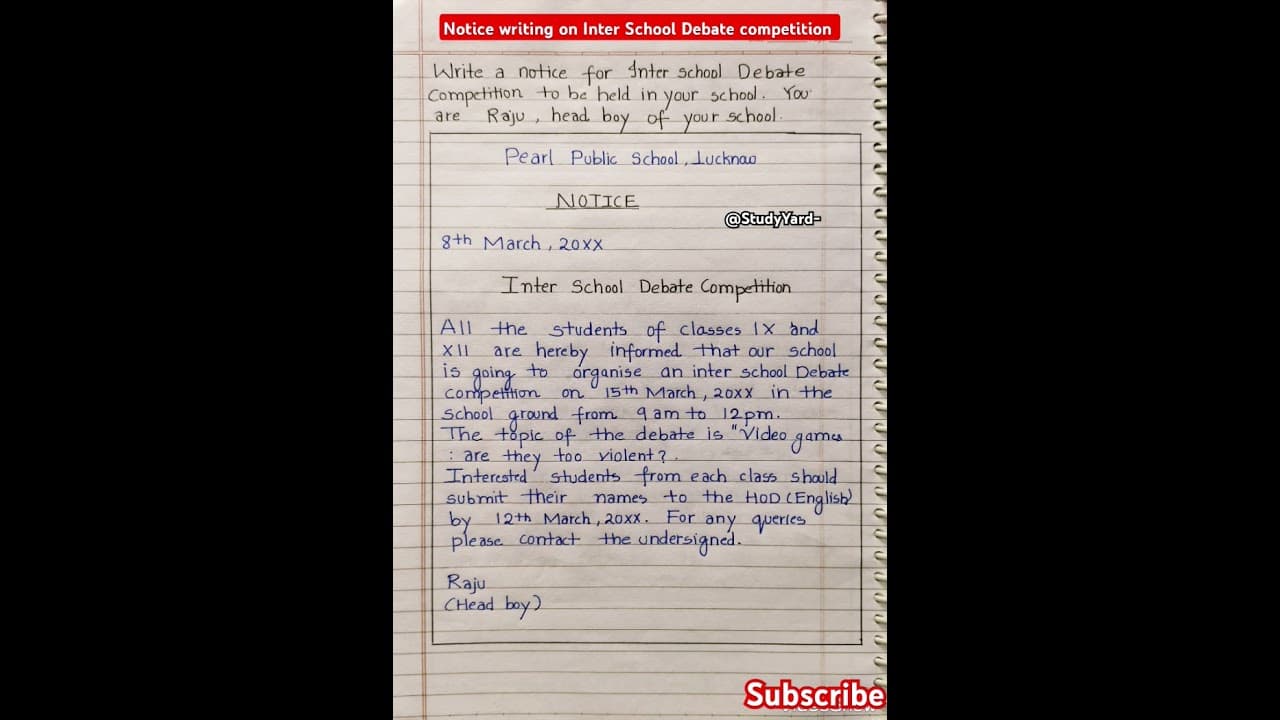 Notice writing on Inter School Debate competition
Write a notice for Inter school Debate
Competition to be held in your school. You
are Raju, head boy of your school.
Pearl Public School, Lucknao
NOTICE
@StudyYard-
8th March, 20XX
Inter School Debate Competition
All the students of classes IX and
XII are hereby informed that our school
is going to organise an inter school Debate
competition on 15th March, 20XX in the
school ground from 9 am to 12 pm.
The topic of the debate is "Video games
: are they too violent?.
Interested students from each class should
submit their names to the HOD (English)
by 12th March, 20XX. For any queries
please contact the undersigned.
Raju
(Head boy)
Subscribe